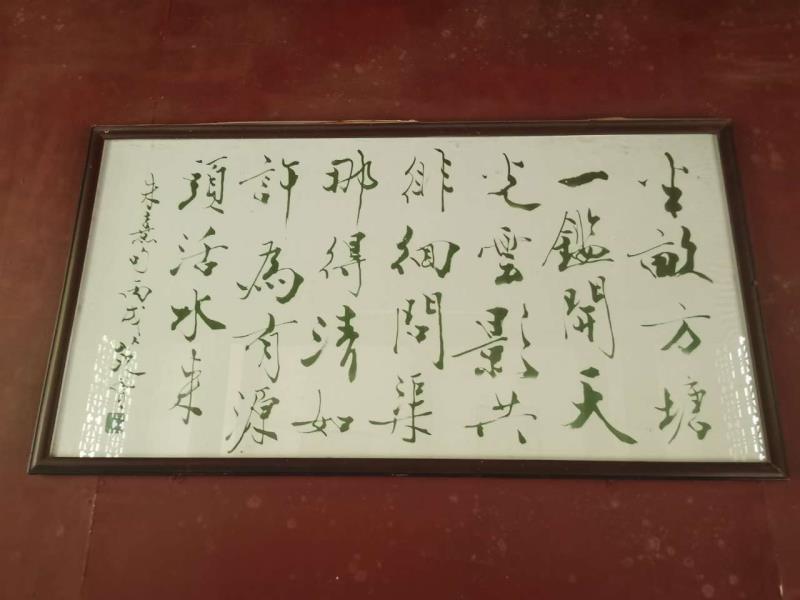 半畝方塘
一鑑開天
光雲影共
徘徊問渠
那得清如
許為有源
頭活水来
朱熹